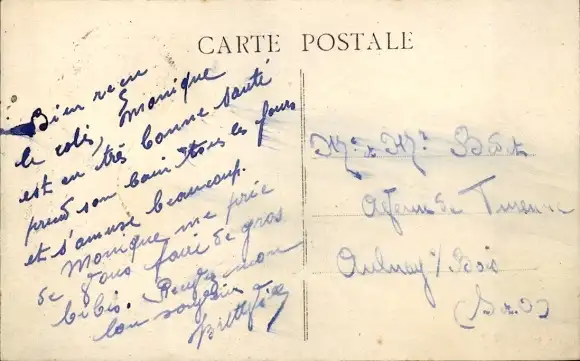 CARTE POSTALE
Bien recu
le colis, Monique
est en très bonne santé
prend son bain tous les jours
et s'amuse beaucoup.
Monique me prie
de vous faire de gros
bibis. Rendez mon
bon souvenir
Mr & Me
Av de Turenne
Aulnay s/Bois
(S&O)